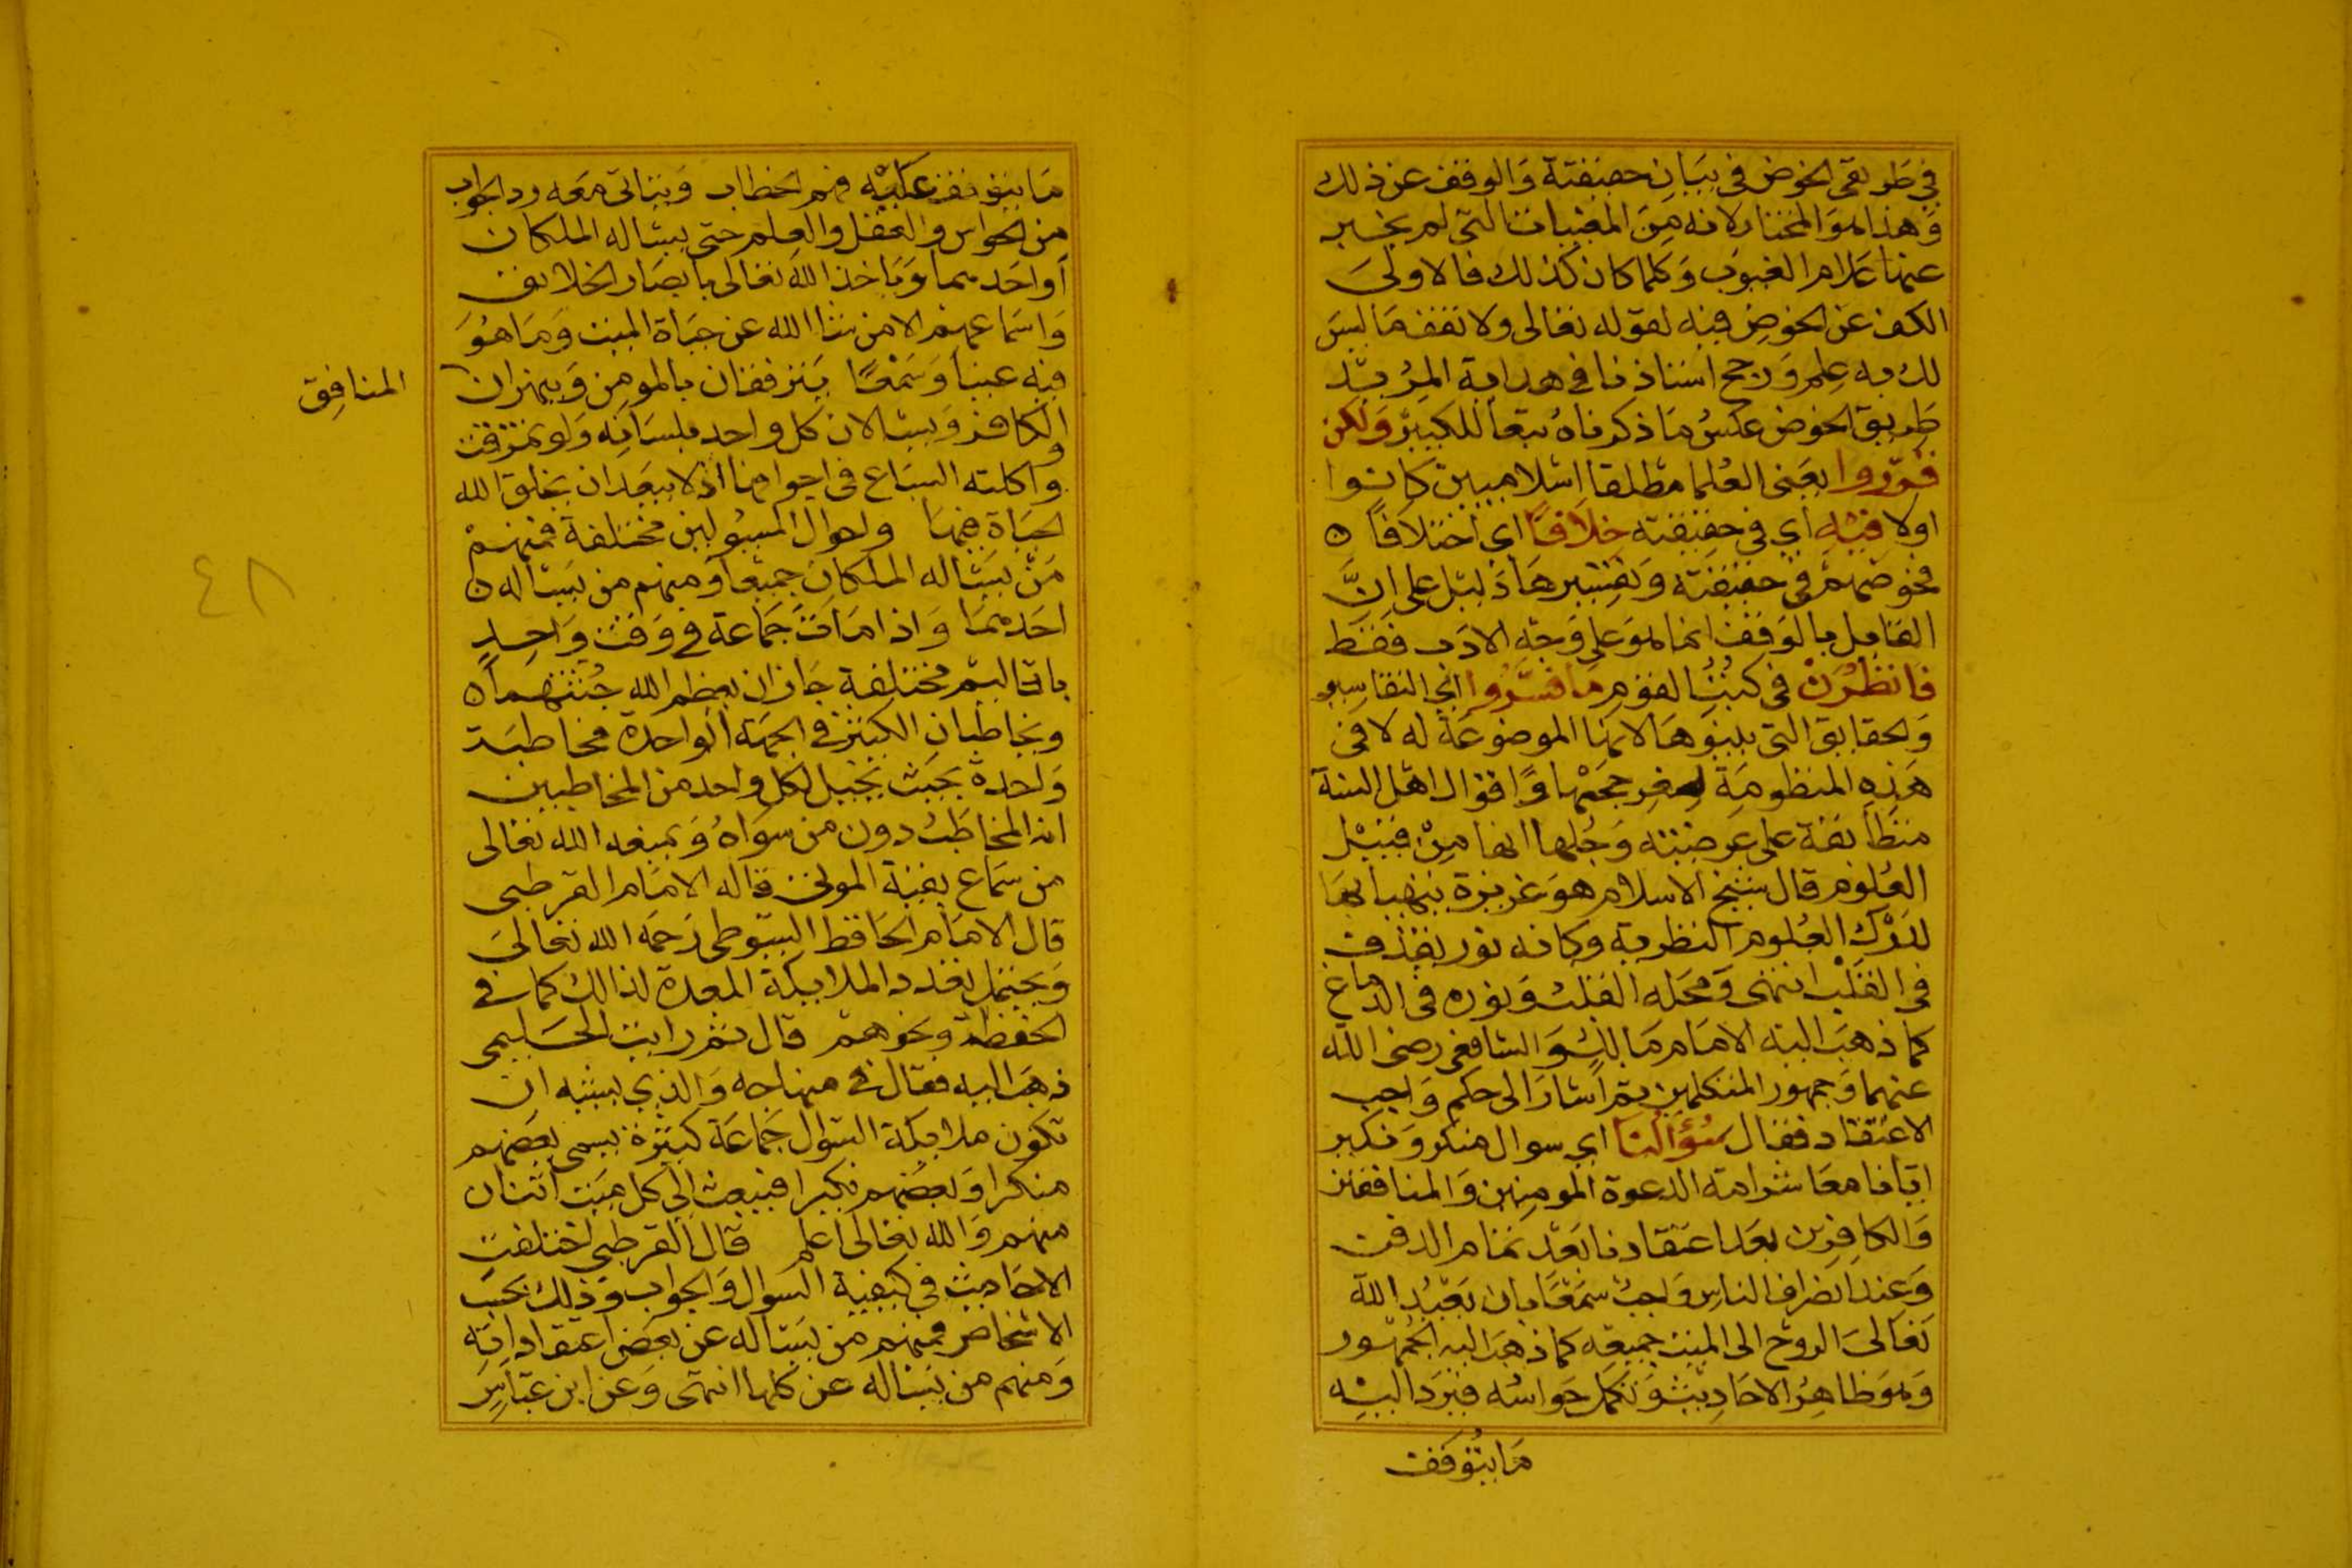 في طريقي الخوض في بيان حقيقة والوقف عن ذلك
وهذا هو المختار لانه من المغيبات التي لم يخبر
عنها علام الغيوب وكلما كان كذلك فالاولى
الكف عن الخوض فيه لقوله تعالى ولا تقف ما ليس
لك به علم ورجح استاذنا في هداية المريد
طريق الخوض عكس ما ذكرناه تبعا للكبير ولكن
قرروا يعني العلما مطلقا اسلاميين كانوا
اولا فيه اي في حقيقته خلافا اي اختلافا ه
فخوضهم في حقيقته وتفسيرها دليل على ان
القايل بالوقف انما هو على وجه الادب فقط
فانظرن في كتب القوم ما فسروا اي التفاسير
والحقايق التي بينوها لانها الموضوعة له لا في
هذه المنظومة لصغر حجمها واقوال اهل السنة
متطابقة على عرضيته وجلها انها من قبيل
العلوم قال شيخ الاسلام هو غريزة يتهيا بها
لدرك العلوم النظرية وكانه نور يقذف
في القلب انتهى ومحله القلب ونوره في الدماغ
كما ذهب اليه الامام مالك والشافعي رضي الله
عنهما وجمهور المتكلمين ثم اشار الى حكم واجب
الاعتقاد فقال سؤالنا اي سوال منكر ونكير
ايانا معاشر امة الدعوة المومنين والمنافقين
والكافرين بعد اعتقادنا بعد تمام الدفن
وعند انصراف الناس واجب سمعا بان يعيد الله
تعالى الروح الى الميت جميعه كما ذهب اليه الجمهور
وهو ظاهر الاحاديث وتكمل حواسه فيرد اليه
ما يتوقف
ما يتوقف عليه فهم الخطاب ويتاتى معه رد الجواب
من الحواس والعقل والعلم حتى يساله الملكان
او احدهما وياخذ الله تعالى بابصار الخلايق
واسماعهم الا من شا الله عن حياة الميت وما هو
فيه عينا وسمعا يترفقان بالمومن وينهران
المنافق
والكافر ويسالان كل واحد بلسانه ولو تمزقت
واكلته السباع في اجوافها اذ لا يبعد ان يخلق الله
الحياة فيها واحوال المسولين مختلفة فمنهم
من يساله الملكان جميعا ومنهم من يساله ه
احدهما واذا مات جماعة في وقت واحد
باقاليم مختلفة جاز ان يعظم الله جثتهما ه
ويخاطبان الكثير في الجهة الواحدة مخاطبة
واحدة بحيث يخيل لكل واحد من المخاطبين
انه المخاطب دون من سواه ويمنعه الله تعالى
من سماع بقية الموتى قاله الامام القرطبي
قال الامام الحافظ السيوطي رحمه الله تعالى
ويحتمل تعدد الملايكة المعدة لذالك كما في
الحفظة ونحوهم قال ثم رايت الحليمي
ذهب اليه فقال في منهاجه والذي يشبه ان
تكون ملايكة السوال جماعة كثيرة يسمى بعضهم
منكرا وبعضهم نكيرا فيبعث الى كل ميت اثنان
منهم والله تعالى اعلم قال القرطبي اختلفت
الاحاديث في كيفية السوال والجواب وذلك بحسب
الاشخاص فمنهم من يساله عن بعض اعتقاداته
ومنهم من يساله عن كلها انتهى وعن ابن عباس
٤٨